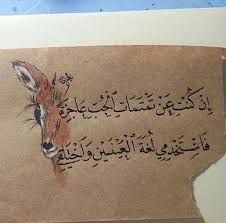 إِن كُنْتِ عَن تَمْتَمَاتِ الْحُبِّ عَاجِزَةً
فَاسْتَخْدِمِي لُغَةَ الْعَيْنَيْنِ وَاخْتَلِقِي